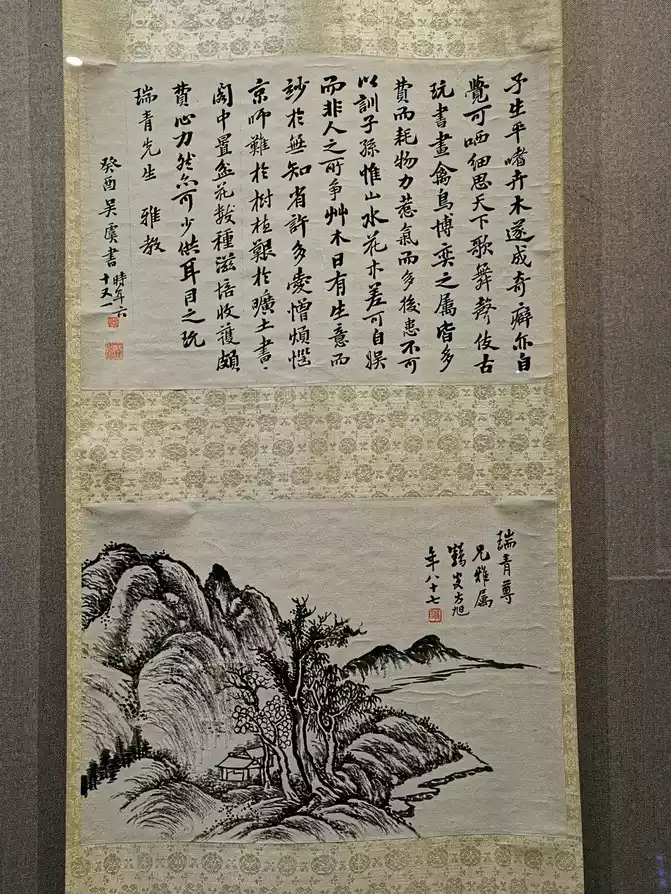 予生平嗜卉木遂成奇癖亦自
覺可哂細思天下歌舞聲伎古
玩書畫禽鳥博奕之屬皆多
費而耗物力惹氣而多後患不可
以訓子孫惟山水花木差可自娛
而非人之所爭艸木日有生意而
妙於無知省許多愛憎煩惱
京師難於樹植艱於曠土書
閣中置盆花數種滋培收護頗
費心力然亦可少供耳目之玩
瑞青先生 雅教
癸酉 吳虞書 時年六
十又一
瑞青尊
兄雅属
鶴叟方旭
年八十七